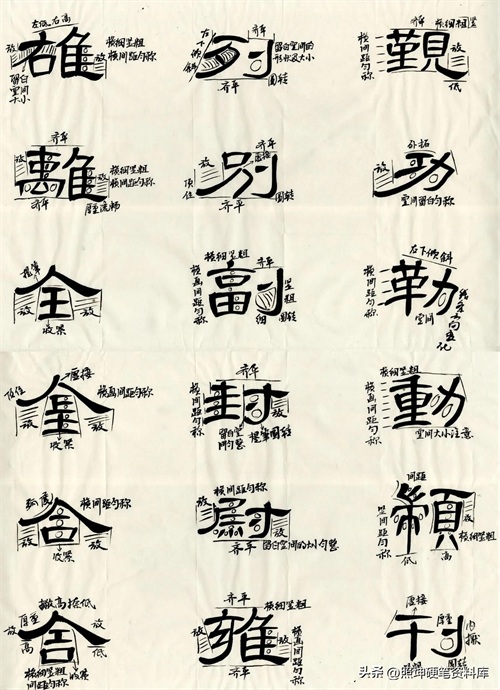 左低右高
放
雄
横细竖粗
横间距匀称
放
留白空间大小
左下倾斜
齐平
列
留白空间的形状及大小
齐平
圆转
齐平
横细竖粗
横间距匀称
觐
放
低
齐平
放
離
横细竖粗
横间距匀称
放
齐平
厚重流畅
齐平
虚接
顶住
别
放
齐平
圆转
外拓
放
功
空间留白匀称
全
放
放
收紧
横细竖粗
齐平
横画间距匀称
副
竖粗
细
圆转
左下倾斜
横间距匀称
勒
空间
虚接
顶住
金
横画间距匀称
放
放
收紧
齐平
横细竖粗
横间距匀称
封
放
圆转
横细竖粗
横间距匀称
動
空间大小注意
弧度
横间距匀称
含
放
放
收紧
横间距匀称
放
尉
放
齐平
留白空间的大小匀整
间距
放
横细竖粗
低
高
撇高捺低
厚重
放
舍
放
高
低
横细竖粗
横间距匀称
收紧
齐平
横细竖粗
放
雍
放
齐平
虚接
厚重
刊
内擫
圆转
头条 @照坤硬笔资料库